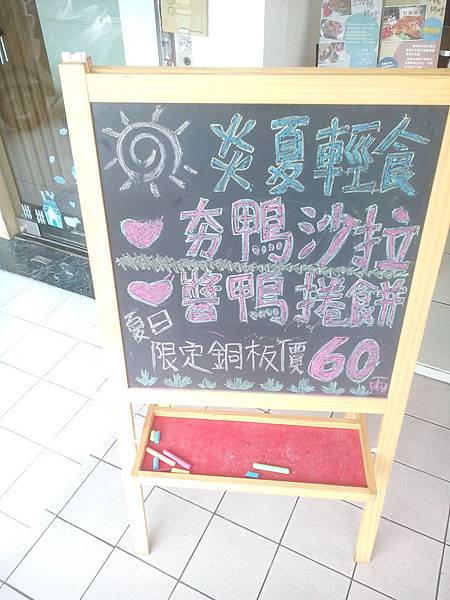 炎夏輕食
夯鴨沙拉
醬鴨捲餅
夏日
限定銅板價60